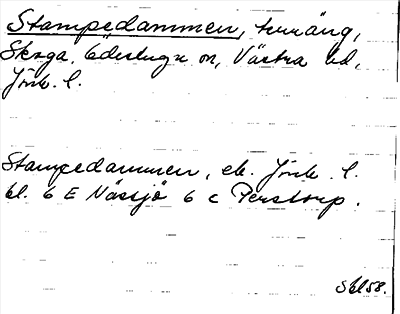 Stampedammen, terräng,
Skoga, Edeslugn on, Västra hd,
Jönk. l.
Stampedammen, ek. Jönk. l.
bl. 6 E Nässjö 6 c Perstorp.
Sbl 58.